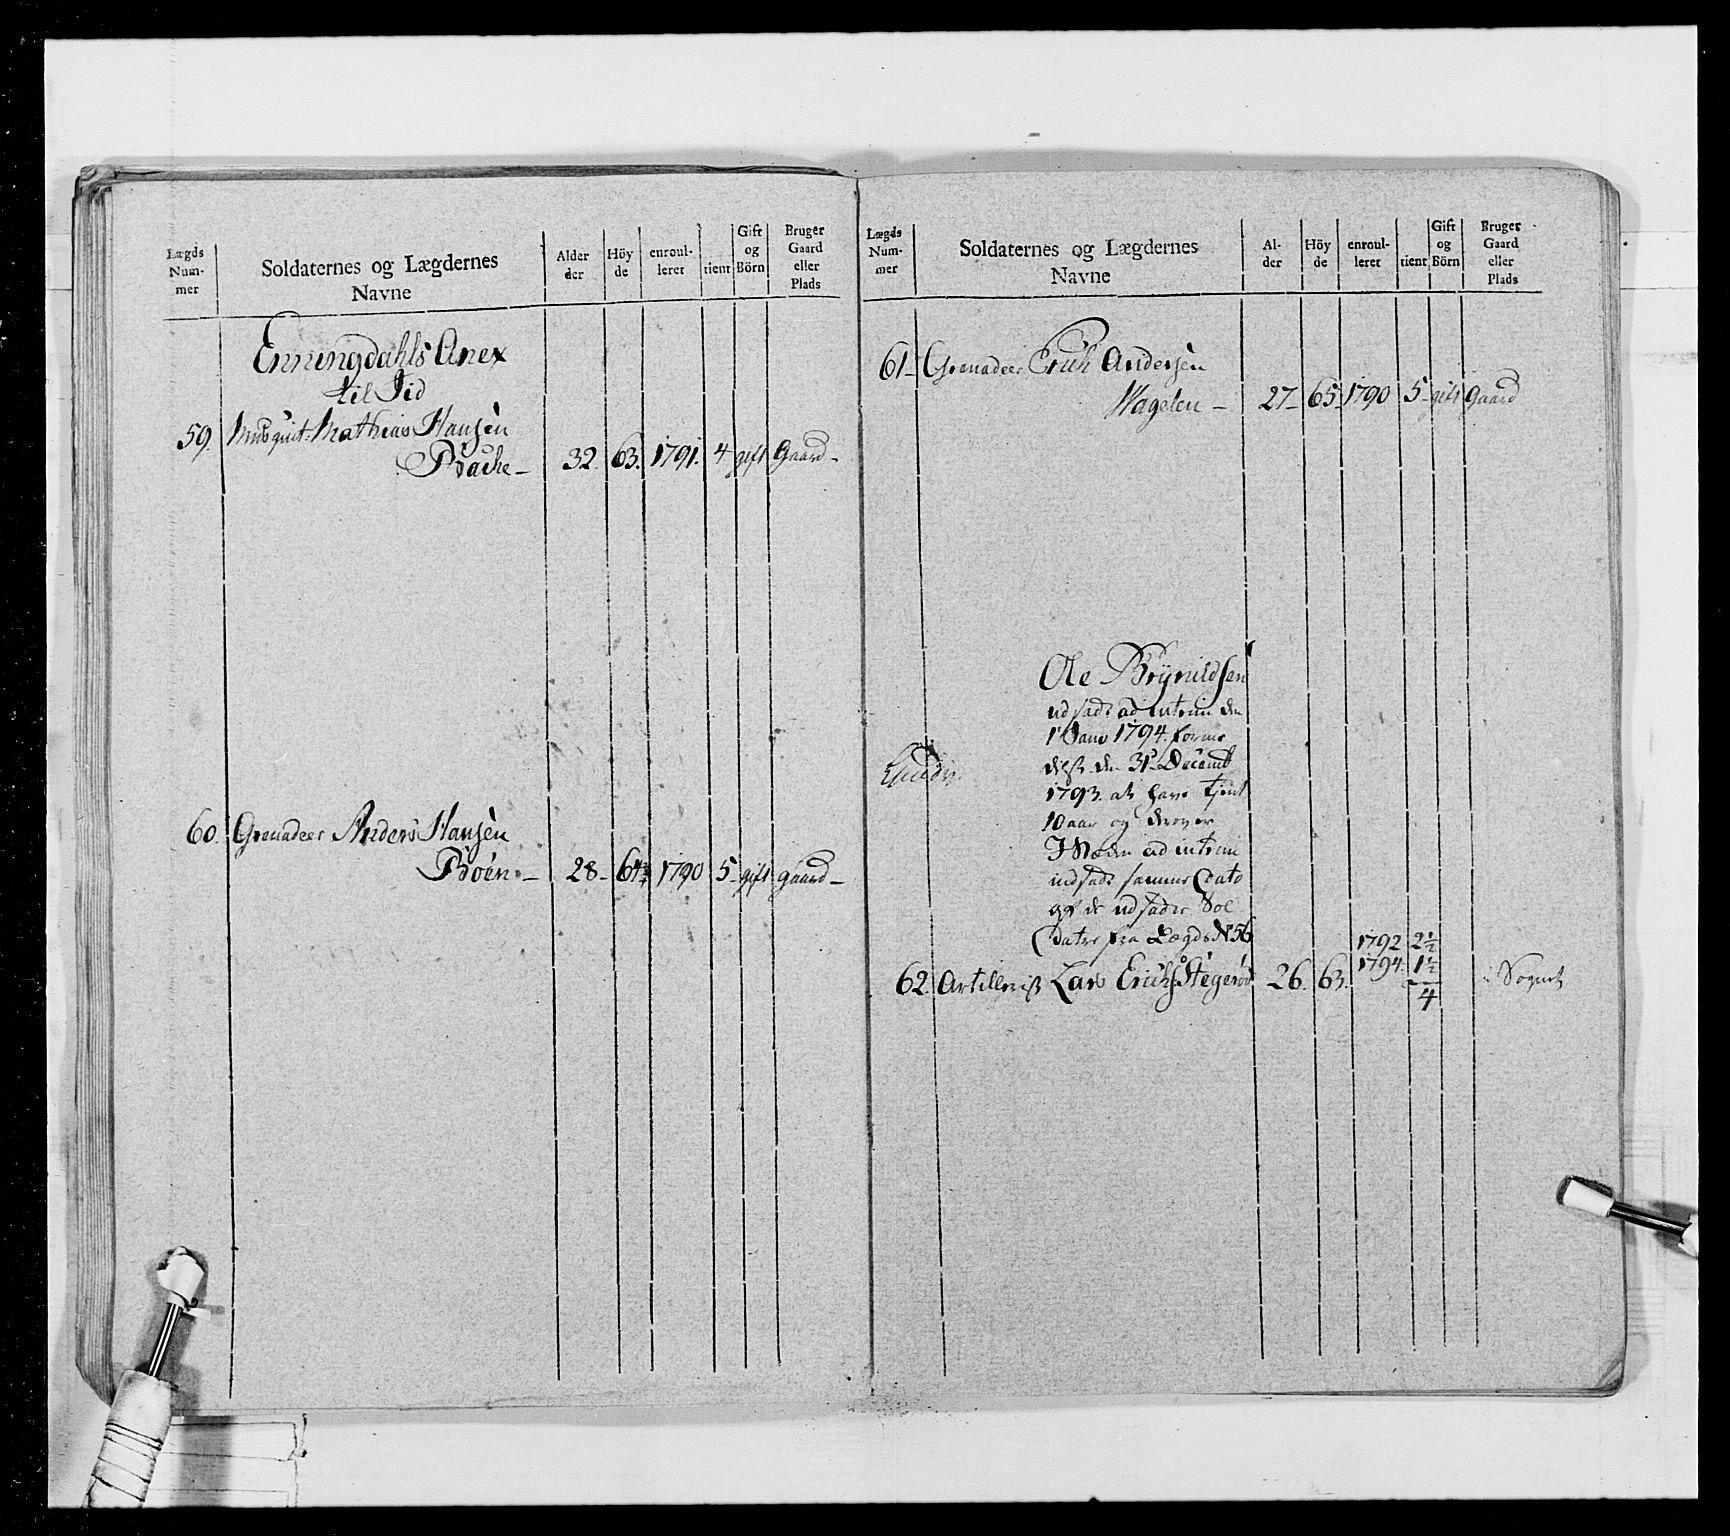 Lægds
Num-
mer
Soldaternes og Lægdernes
Navne
Alder
der
Höy
de
enroul-
leret
tient
Gift
og
Börn
Bruger
Gaard
eller
Plads
Enningdahls Anex
til Jid
59. Musquit: Mathias Hansen
Bache – 32. 63. 1791. 4 gift Gaard –
60. Grenadeer Anders Hansen
Böen – 28 – 64 1790 5 – gift gaard –
Lægds
Num-
mer
Soldaternes og Lægdernes
Navne
Al-
der
Höy
de
enroul-
leret
tient
Gift
og
Börn
Bruger
Gaard
eller
Plads
61 – Grenadeer Erich Andersen
Wagelen – 27 – 65 – 1790 5 – gift Gaard
Ole Brynildsen
udsadt ad intrim den
1 Janv 1794. forme
delst den 31 Decemb
1793. at have tjent
10 aar og derover
I Steden ad intrim
indsadt samme Dato
af de udsadte Sol
dater fra Lægds No 56
1792 2½
62. Artillerist Lars Erichs. Stegerød 26. 63. 1794. 1½ i Sognet
4